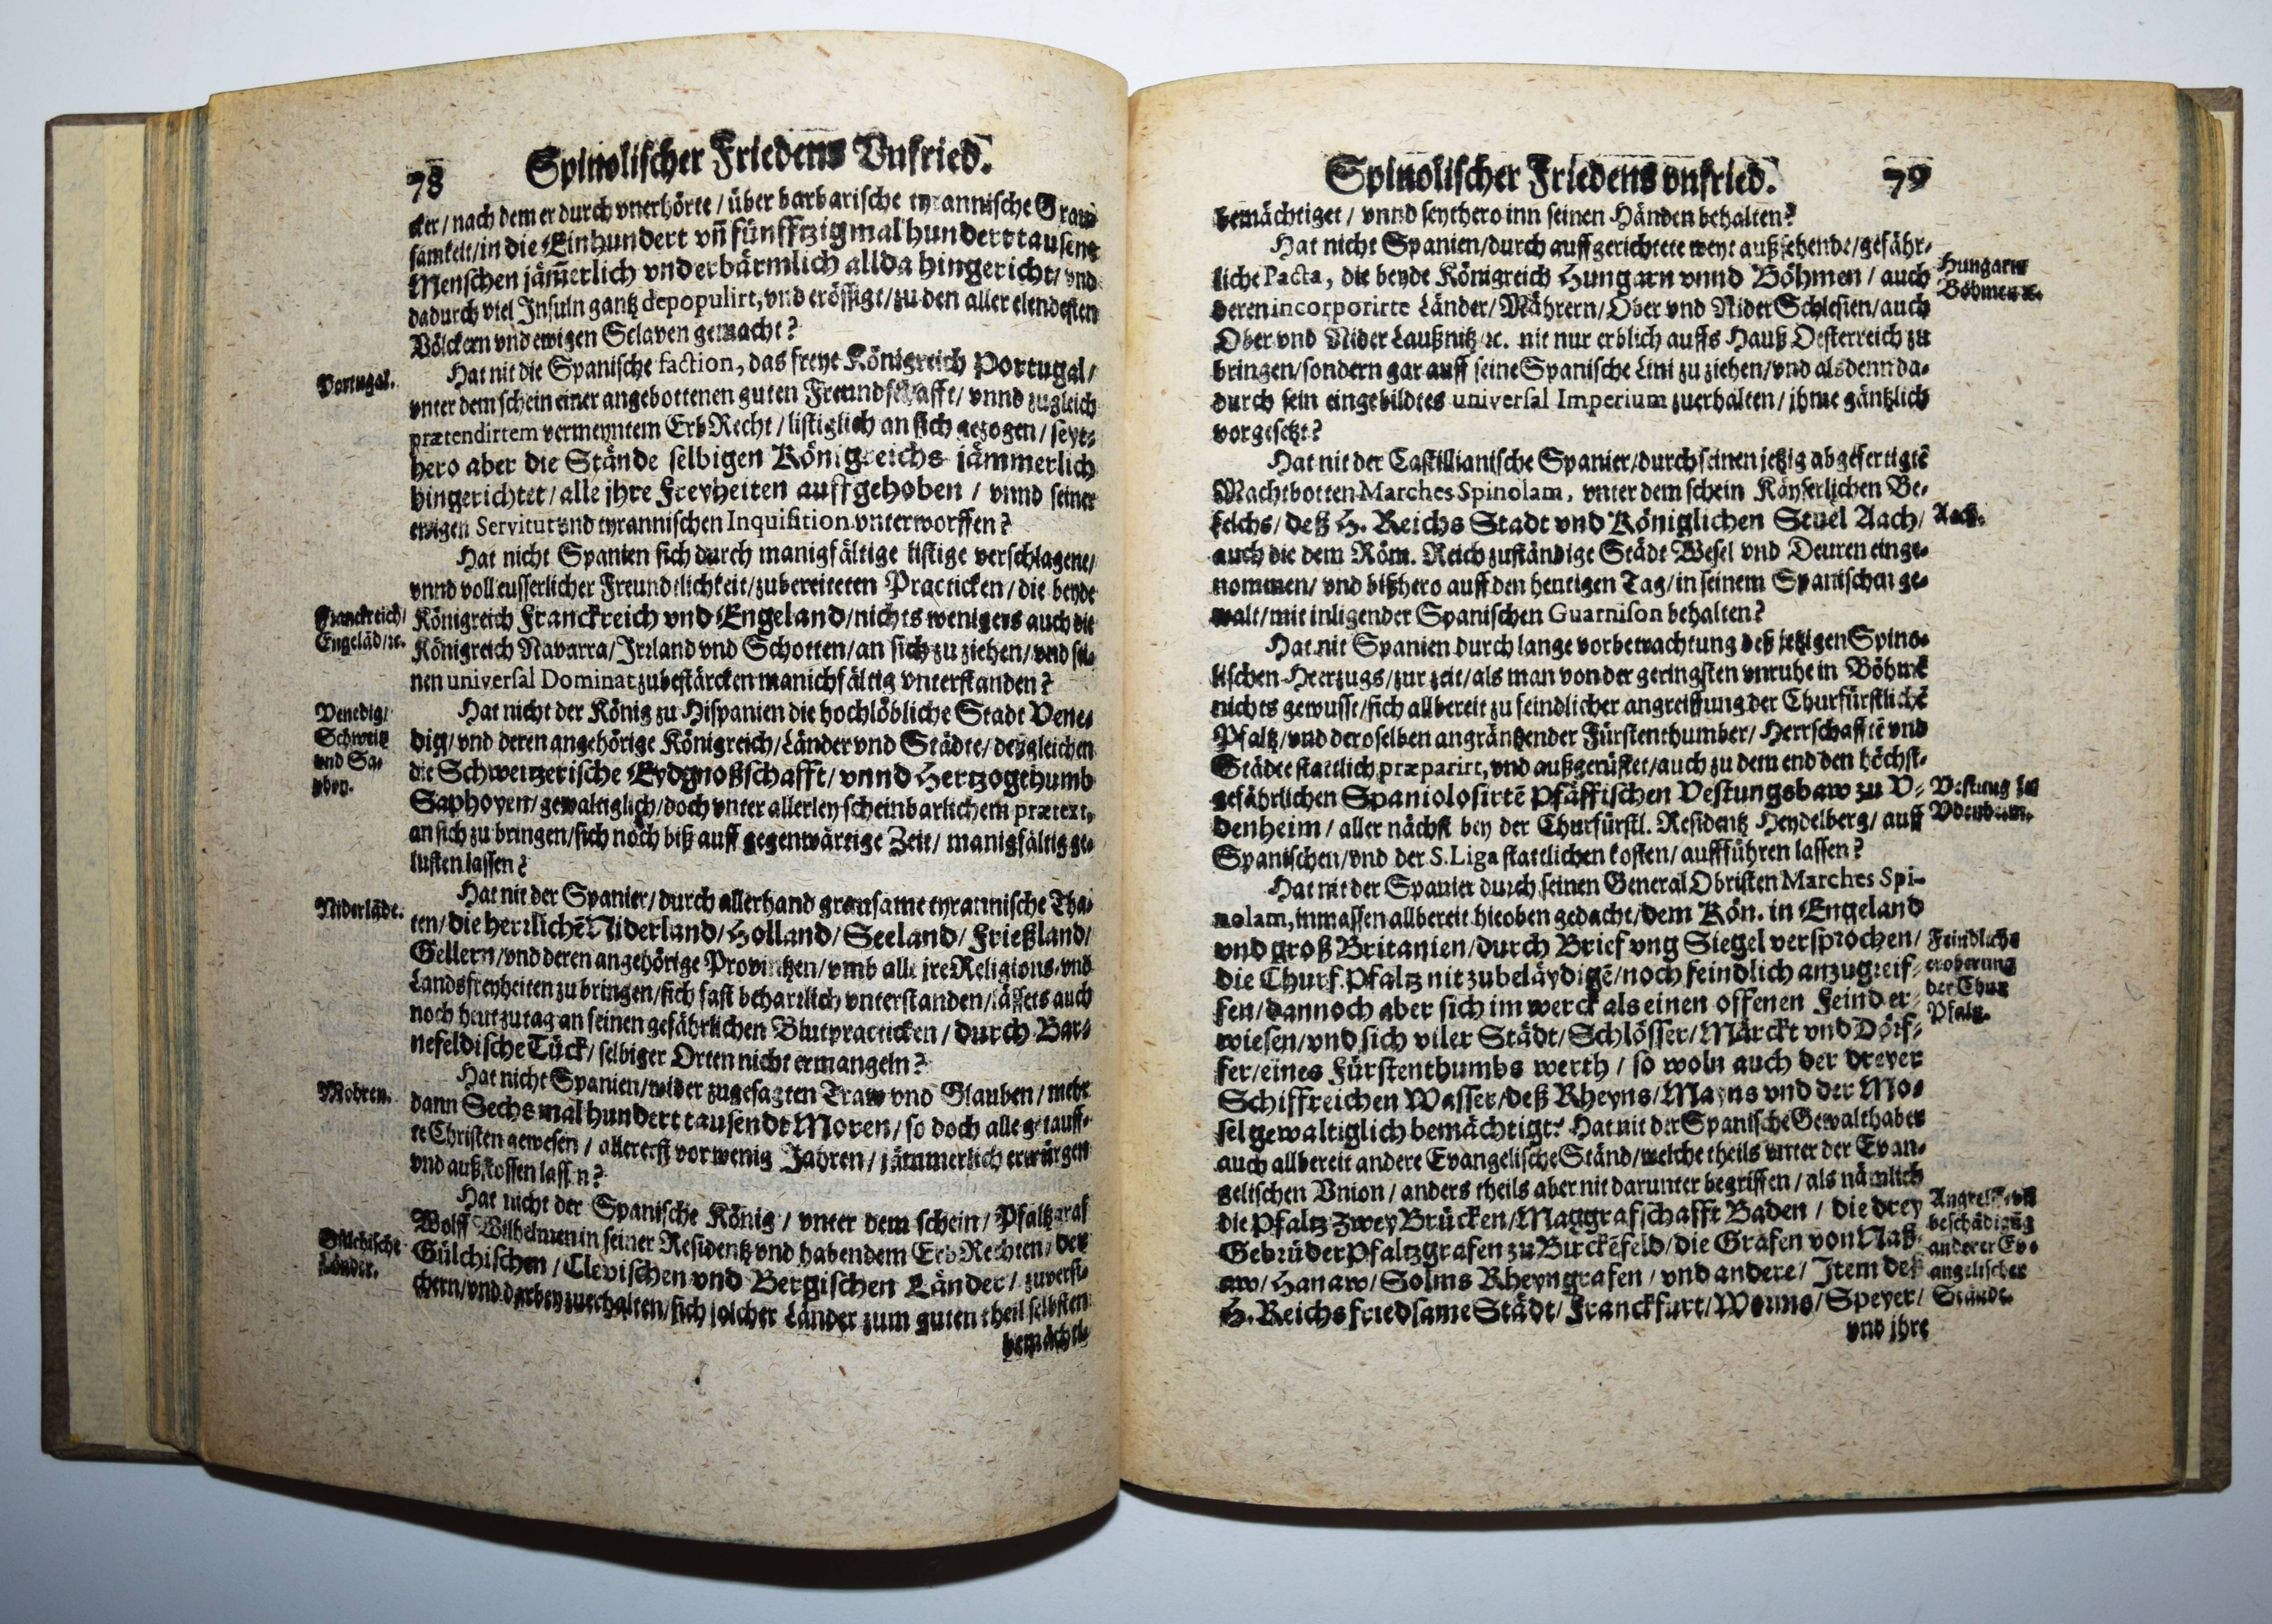 78 Spinolischer Friedens Vnfried.
cker/nach dem er durch vnerhörte/über barbarische tyrannische Graw
samkeit/in die Einhundert vn̄ fünfftzig mal hundert tausent
Menschen jäm̄erlich vnd erbärmlich allda hingericht/vnd
dadurch viel Insuln gantz depopulirt, vnd erößigt/zu den aller elendesten
Völckern vnd ewigen Sclaven gemacht?
Portugal.
Hat nit die Spanische faction, das freye Königreich Portugal/
vnter dem schein einer angebottenen guten Freundschafft/vnnd zugleich
prætendirtem vermeyntem Erb Recht/listiglich an sich gezogen/seyt-
hero aber die Stände selbigen Königreichs jämmerlich
hingerichtet/alle jhre Freyheiten auffgehoben/vnnd seiner
ewigen Servitut vnd tyrannischen Inquisition vnterworffen?
Hat nicht Spanien sich durch manigfältige listige verschlagene/
vnnd voll eusserlicher Freundtlichkeit/zubereiteten Practicken/die beyde
Franckreich/
Engelād/ꝛc.
Königreich Franckreich vnd Engeland/nichts wenigers auch die
Königreich Navarra/Irrland vnd Schotten/an sich zu ziehen/vnd sei-
nen universal Dominat zubestärcken manichfältig vnterstanden?
Venedig/
Schweitz
vnd Sa-
phoy.
Hat nicht der König zu Hispanien die hochlöbliche Stadt Vene-
dig/vnd deren angehörige Königreich/Länder vnd Städte/deßgleichen
die Schweitzerische Eydgnoßschafft/vnnd Hertzogthumb
Saphoyen/gewaltiglich/doch vnter allerley scheinbarlichem prætext,
an sich zu bringen/sich noch biß auff gegenwärtige Zeit/manigfältig ge-
lusten lassen?
Niderlāde.
Hat nit der Spanier/durch allerhand grausame tyrannische Tha-
ten/die herrlichē Niderland/Holland/Seeland/Frießland/
Gellern/vnd deren angehörige Provintzen/vmb alle jre Religions- vnd
Landsfreyheiten zu bringen/sich fast beharrlich vnterstanden/lässets auch
noch heut zu tag an seinen gefährlichen Blutpracticken/durch Bar-
nefeldische Tück/selbiger Orten nicht ermangeln?
Mohren.
Hat nicht Spanien/wider zugesagten Traw vnd Glauben/mehr
dann Sechs mal hundert tausendt Moren/so doch alle getauff-
te Christen gewesen/allererst vor wenig Jahren/jämmerlich erwürgen
vnd außstossen lassen?
Gülchische
Länder.
Hat nicht der Spanische König/vnter dem schein/Pfaltzgraf
Wolff Wilhelmen in seiner Residentz vnd habendem Erb Rechten/der
Gülchischen/Clevischen vnd Bergischen Länder/zuversi-
chern/vnd darbey zuerhalten/sich solcher Länder zum guten theil selbsten
bemächti-
Spinolischer Friedens vnfried. 79
bemächtiget/vnnd seythero inn seinen Händen behalten?
Hat nicht Spanien/durch auffgerichtete weyt außsehende/gefähr-
liche Pacta, die beyde Königreich Hungarn vnnd Böhmen/auch
deren incorporirte Länder/Mährern/Ober vnd Nider Schlesien/auch
Hungarn
Böhmen ꝛc.
Ober vnd Nider Laußnitz ꝛc. nit nur erblich auffs Hauß Oesterreich zu
bringen/sondern gar auff seine Spanische Lini zu ziehen/vnd alsdenn da-
durch sein eingebildtes universal Imperium zuerhalten/jhme gäntzlich
vorgesetzt?
Hat nit der Castillianische Spanier/durch seinen jetzig abgefertigtē
Machtbotten Marches Spinolam, vnter dem schein Käyserlichen Be-
felchs/deß H. Reichs Stadt vnd Königlichen Stuel Aach/
Aach.
auch die dem Röm. Reich zuständige Städt Wesel vnd Deuren einge-
nommen/vnd bißhero auff den heutigen Tag/in seinem Spanischen ge-
walt/mit inligender Spanischen Guarnison behalten?
Hat nit Spanien durch lange vorbetrachtung deß jetzigen Spino-
lischen Heerzugs/zur zeit/als man von der geringsten vnruhe in Böhmē
nichts gewusst/sich allbereit zu feindlicher angreiffung der Churfürstlichē
Pfaltz/vnd deroselben angräntzender Fürstenthumber/Herrschafftē vnd
Städte stattlich præparirt, vnd außgerüstet/auch zu dem end den höchst-
gefährlichen Spaniolosirtē Pfäffischen Vestungsbaw zu V-
denheim/aller nächst bey der Churfürstl. Residentz Heydelberg/auff
Vestung zu
Vdenheim.
Spanischen/vnd der S. Liga stattlichen kosten/auffführen lassen?
Hat nit der Spanier durch seinen General Obristen Marches Spi-
nolam, inmassen allbereit hieoben gedacht/dem Kön. in Engeland
vnd groß Britanien/durch Brief vng Siegel versprochen/
die Churf. Pfaltz nit zubeläydigē/noch feindlich anzugreif-
fen/dannoch aber sich im werck als einen offenen Feind er-
Feindliche
eroberung
der Chur
Pfaltz.
wiesen/vnd sich viler Städt/Schlösser/Märckt vnd Dörf-
fer/eines Fürstenthumbs werth/so woln auch der dreyer
Schiffreichen Wasser/deß Rheyns/Mayns vnd der Mo-
sel gewaltiglich bemächtigt? Hat nit der Spanische Gewalthaber
auch allbereit andere Evangelische Ständ/welche theils vnter der Evan-
gelischen Vnion/anders theils aber nit darunter begriffen/als nämlich
die Pfaltz Zwey Brücken/Maggrafschafft Baden/die drey
Gebrüder Pfaltzgrafen zu Birckēfeld/die Grafen von Naß-
aw/Hanaw/Solms Rheyngrafen/vnd andere/Item deß
H. Reichs friedsame Städt/Franckfurt/Worms/Speyer/
beschädigūg
anderer Ev-
angelischer
Stände.
vnd jhre